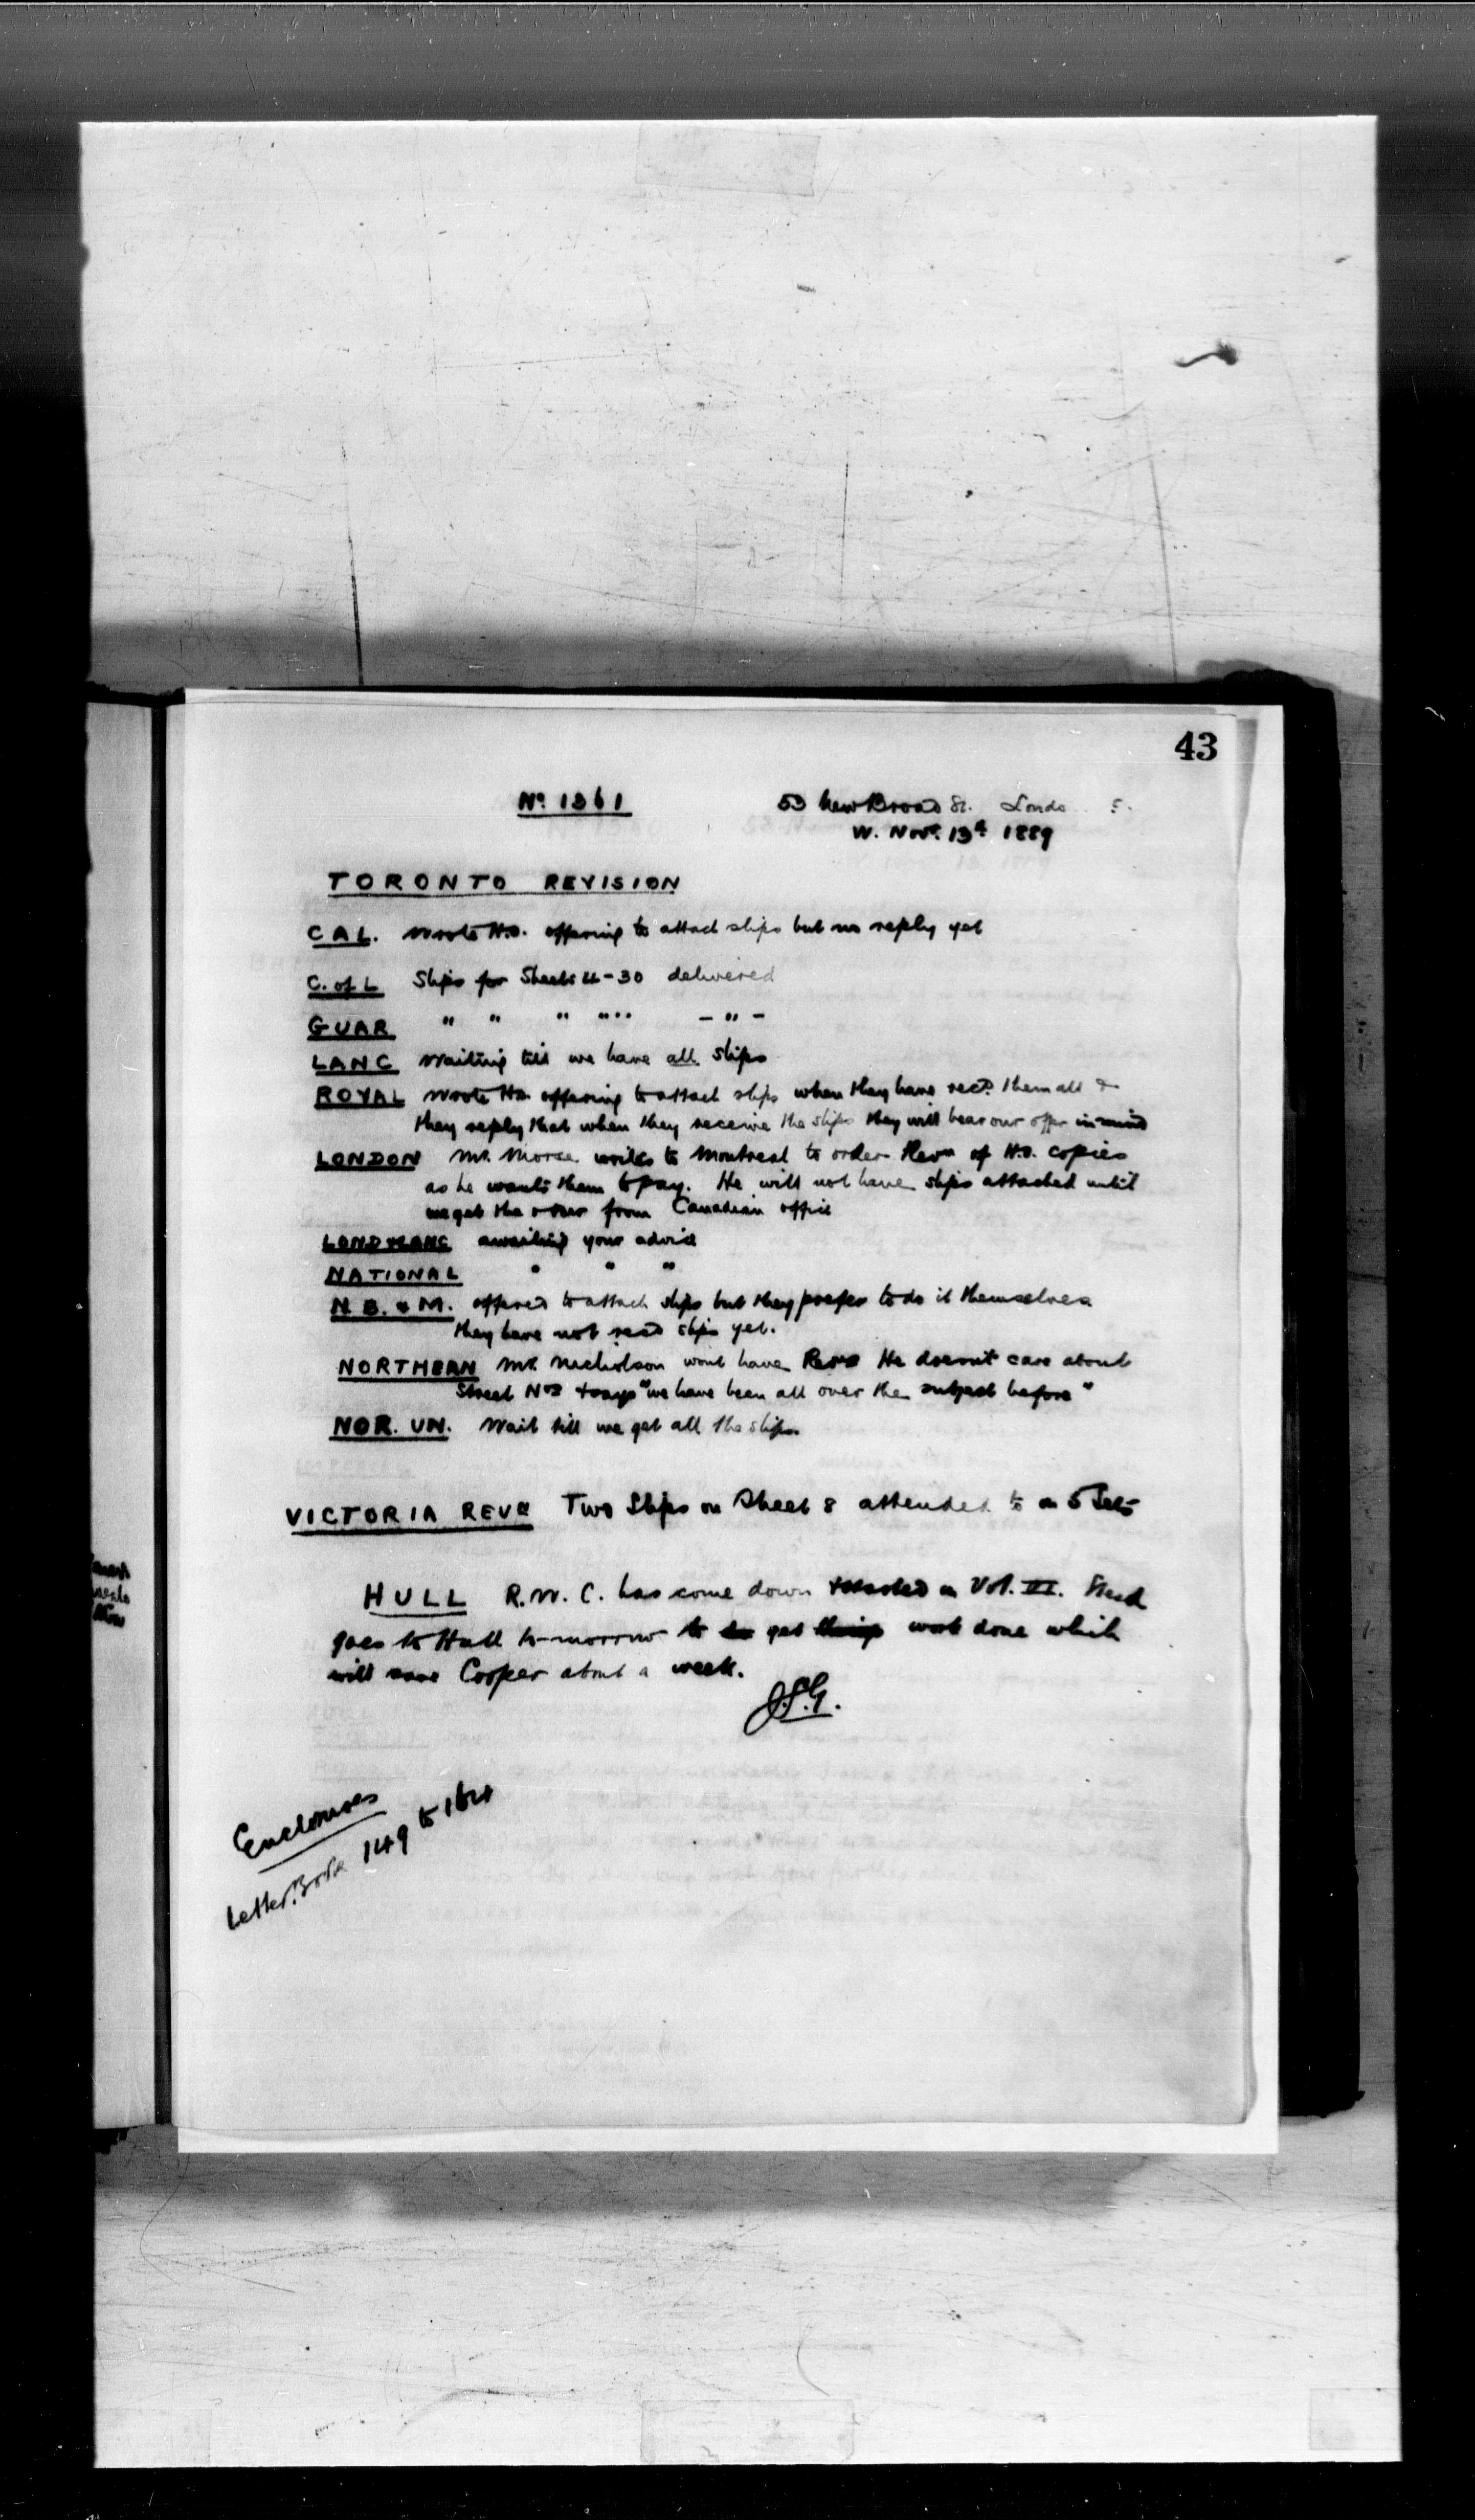 43
No. 1361
53 New Broad St. London E.
W. Nov. 13th 1889
TORONTO REVISION
CAL. Wrote H.O. offering to attach slips but no reply yet
C. of L Slips for Sheets 4-30 delivered
GUAR " " " " " — " —
LANC Waiting till we have all slips
ROYAL Wrote H.O. offering to attach slips when they have recd. them all &
they reply that when they receive the slips they will bear our offer in mind
LONDON Mr. Morse writes to Montreal to order Revn of H.O. copies
as he wants them to pay. He will not have slips attached until
we get the order from Canadian office
LOND & LANC awaiting your advice
NATIONAL " " "
N. B. & M. offered to attach slips but they prefer to do it themselves
they have not recd slips yet.
NORTHERN Mr. Nicholson wont have Revn He doesn't care about
Street Nos & says "we have been all over the subject before"
NOR. UN. Wait till we get all the slips.
VICTORIA REVn Two Slips on Sheet 8 attended to on 5 Sets
HULL R.W.C. has come down in Vol. III.
goes to Hull to-morrow to get work done which
will save Cooper about a week.
J.S.G.
Enclosures
Letter Book 149 to 164